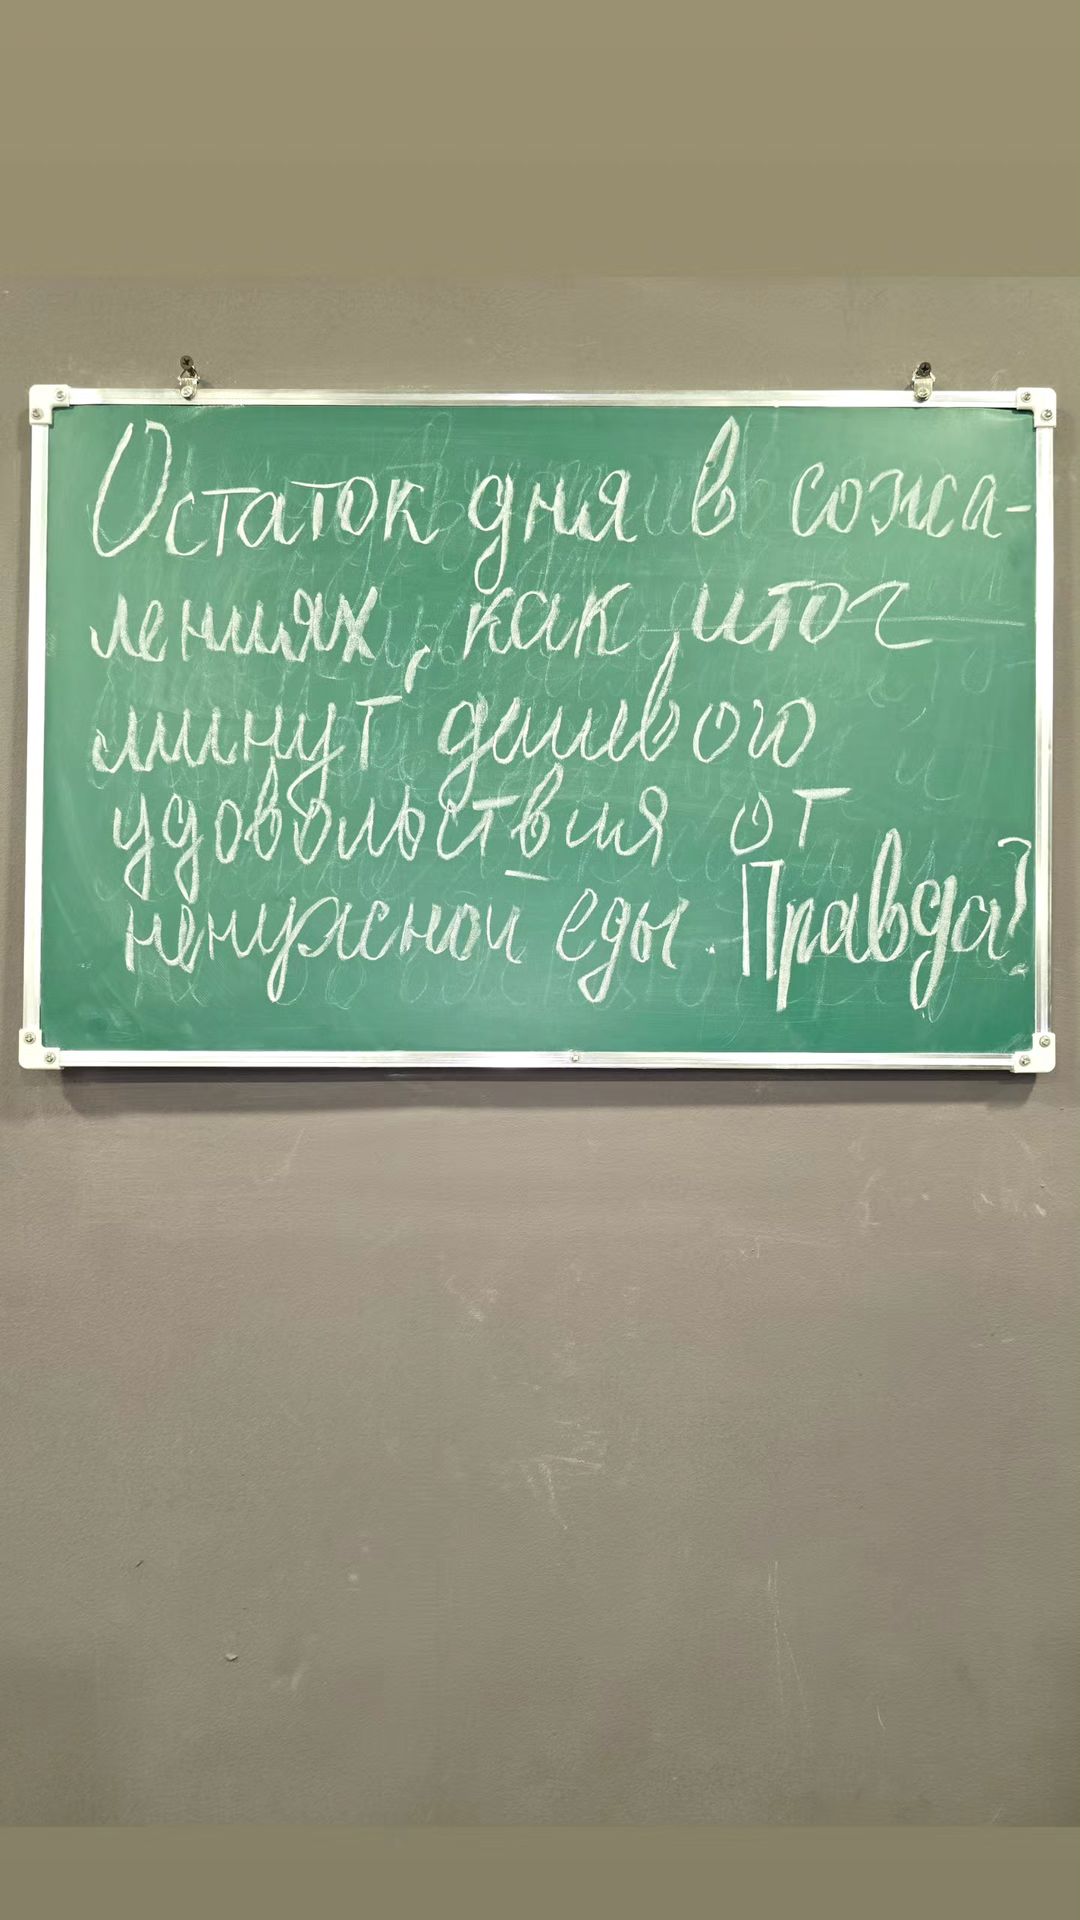 Остаток дня в сожа-
лениях, как итог
минут дешевого
удовольствия от
ненужной еды. Правда?